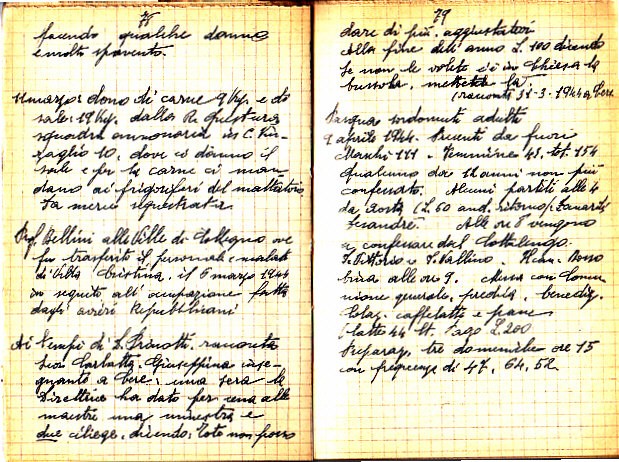 78
facendo qualche danno
e molto spavento.
11 marzo: dono di carne 9 Kg. e di
sale: 19 Kg. dalla R. Questura
squadra annonaria in C. Vin-
zaglio 10, dove ci danno il
sale e per la carne ci man-
dano ai frigoriferi del mattatoio
Fa merce sequestrata.
Prof. Bellini alle Ville di Collegno ove
fu trasferito il personale e malati
di Villa Cristina, il 6 marzo 1944
in seguito all'occupazione fatta
dagli avieri Repubblicani
Ai tempi di D. Prinotti, racconta
Suor Carlotta, Giuseppina inse-
gnante a Cere: una sera la
Direttrice ha dato per cena alle
maestre una minestra e
due ciliege, dicendo: Tote non posso
79
dare di più, aggiustatevi
Alla fine dell'anno L. 100 dicendo
se non le volete c'è in Chiesa la
bussola,
(racconti 31-3-1944 a Cere
Pasqua sordomuti adulti
9 aprile 1944. Venuti da fuori
Maschi 111. Femmine 43. tot. 154
Qualcuno da 12 anni non più
confessato. Alcuni partiti alle 4
da Aosta (L. 60 and. ritorno)
Alle ore 8 vengono
a confessare dal Cottolengo
ore 9. Messa con Comu-
nione generale, predica, benediz.
Colaz. caffelatte e pane
(latte 44 lt. Pago L. 200
Preparaz. tre domeniche ore 15
con frequenze di 47, 64, 52